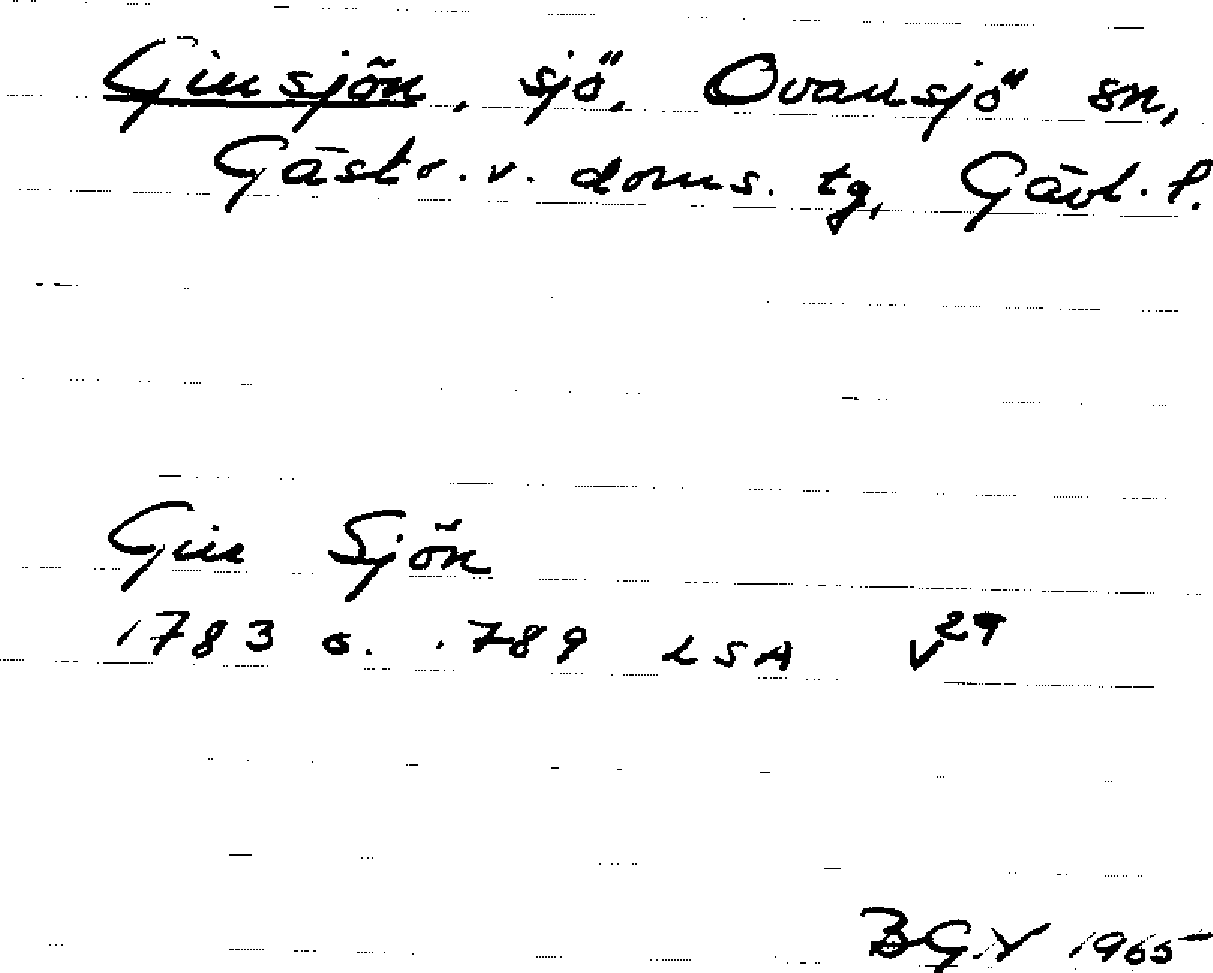 Ginsjön, sjö, Ovansjö sn,
Gästr. v. doms. tg, Gävl. l.
Gin Sjön
1783 o. 1789 LSA V29
BGN 1965